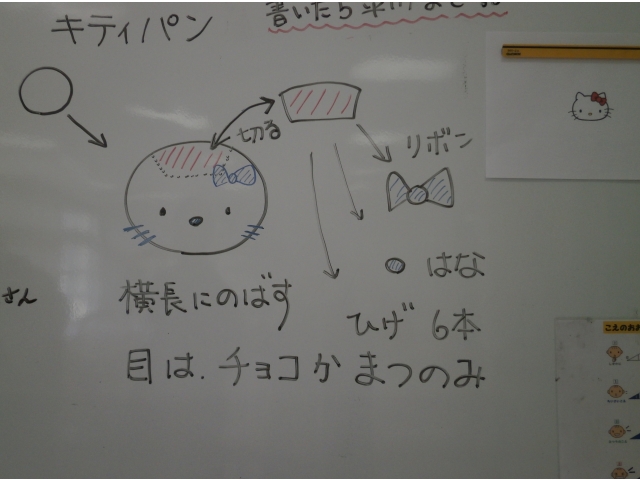 キティパン
書いたら
切る
リボン
はな
さん
横長にのばす
ひげ 6本
目は、チョコか まつのみ
こえのお